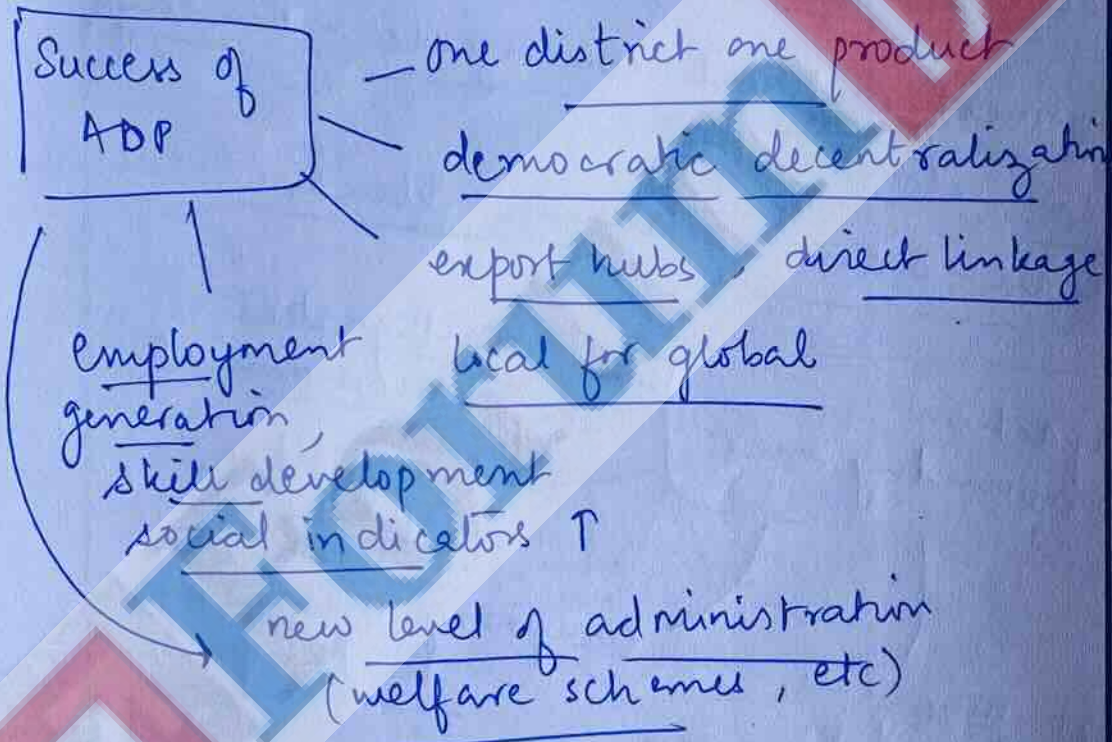 Success of
ADP
— one district one product
democratic decentralization
export hubs, direct linkage
local for global
employment
generation,
skill development
social indicators ↑
new level of administration
(welfare schemes, etc)
Forum